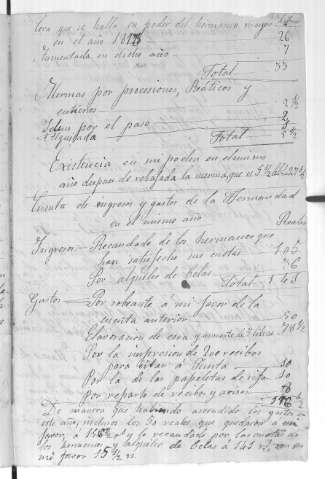 Cera que se halla en poder del hermano mayor
en el año 1878 26
Aumentada en dicho año 7
Total 33
Mermas por procesiones, Viáticos y
entierros 2 ½
Idem por el paso
Total 5 ½
Existencia en mi poder en el mismo
año despues de rebajada la merma que es 5 ½ 27 ½
Cuenta de ingresos y gastos de la Hermandad
en el mismo año
Reales
Ingresos Recaudado de los hermanos que
han satisfecho sus cuotas 105
Por alquiler de belas
Total 143
Gastos Por sobrante á mi favor de la
cuenta anterior 50
Elavoracion de cera y aumento de 7 libras 78 ½
Por la impresion de 200 recibos
para citar á Junta 30
Por la de las papeletas de rifa
Por reparto de recibos y avisos
De manera que habiendo ascendido los gastos
este año, inclusos los 50 reales que quedaron á mi
favor, á y lo recaudado por las cuotas de
los hermanos y alquiler de belas á 143 rs,
mi favor 15 ½ rs.